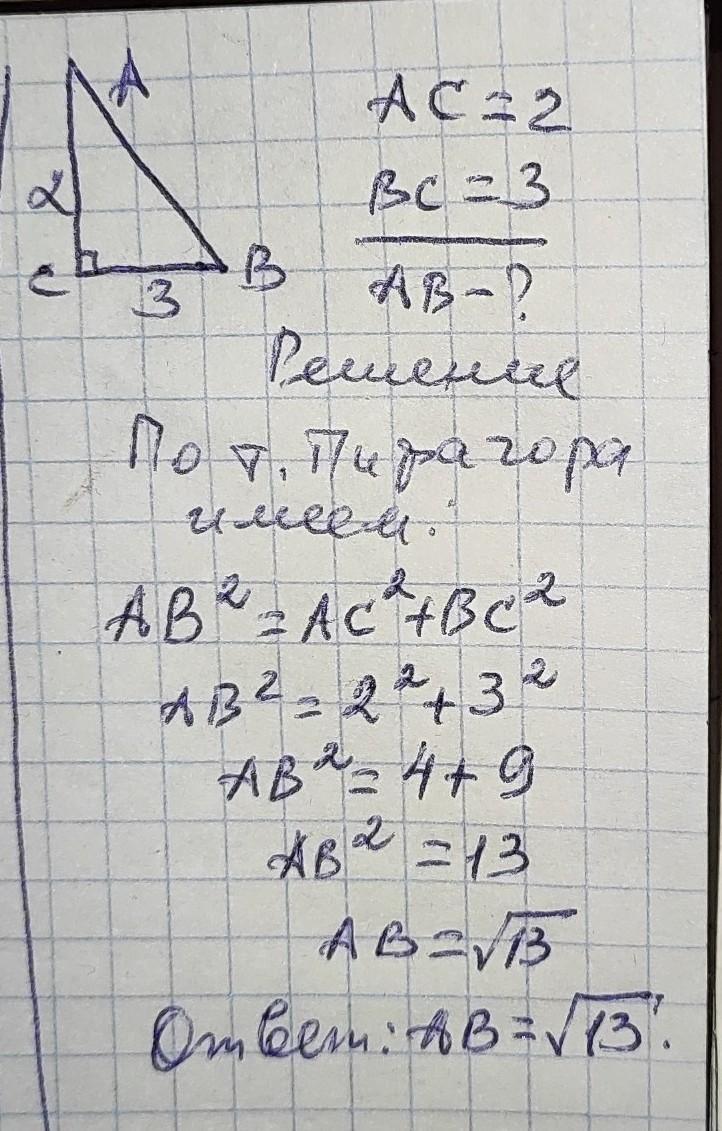 A
AC = 2
2
BC = 3
C
3
B
AB - ?
Решение
По т. Пифагора
имеем:
AB² = AC² + BC²
AB² = 2² + 3²
AB² = 4 + 9
AB² = 13
AB = √13
Ответ: AB = √13.